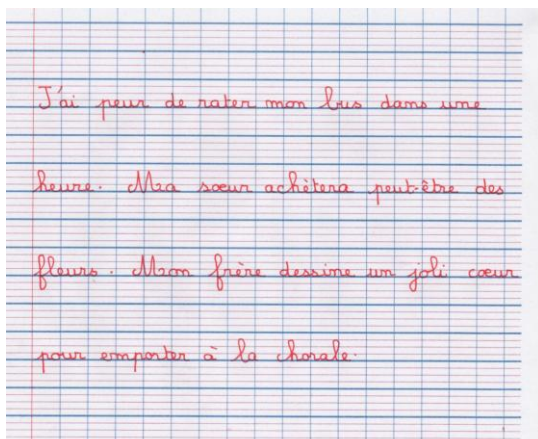 J'ai peur de rater mon bus dans une
heure. Ma sœur achètera peut-être des
fleurs. Mon frère dessine un joli cœur
pour emporter à la chorale.